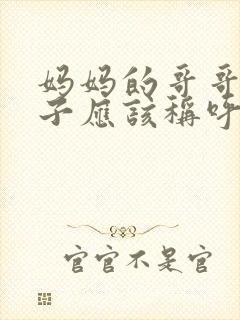 妈妈的哥哥
子应该称呼
官官不是官